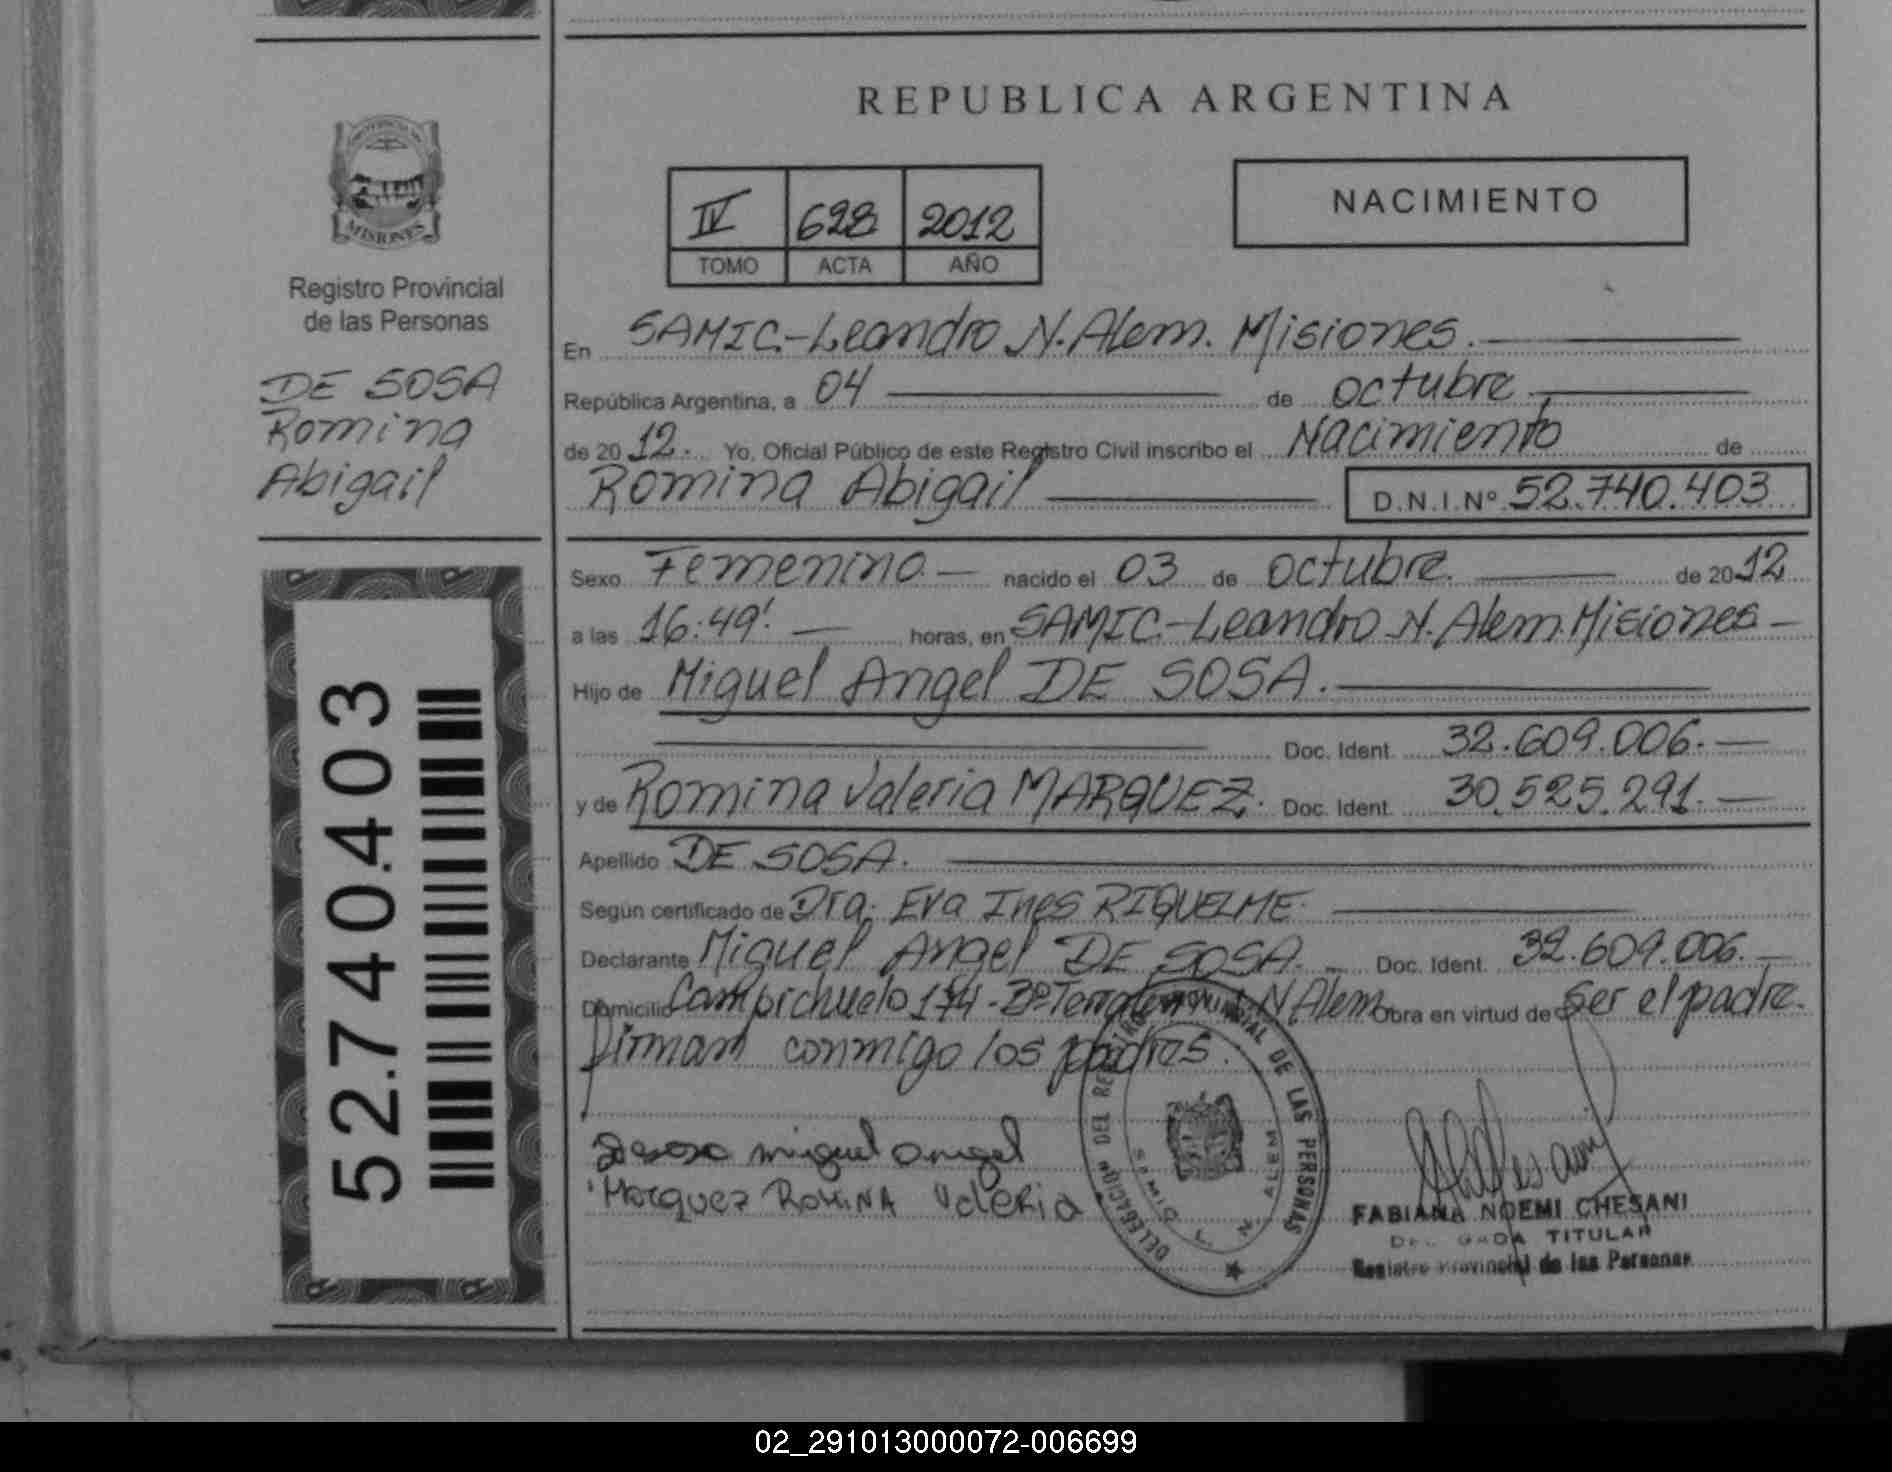 REPUBLICA ARGENTINA
PROVINCIA DE
MISIONES
Registro Provincial
de las Personas
DE SOSA
Romina
Abigail
52.740.403
IV 628 2012
TOMO ACTA AÑO
NACIMIENTO
En SAMIC.-Leandro N. Alem. Misiones.
República Argentina, a 04 de octubre
de 2012. Yo, Oficial Público de este Registro Civil inscribo el Nacimiento de
Romina Abigail D.N.I.Nº 52.740.403
Sexo Femenino.- nacido el 03 de octubre. de 2012
a las 16:49'. horas, en SAMIC.-Leandro N. Alem. Misiones-
Hijo de Miguel Angel DE SOSA.
Doc. Ident. 32.609.006.-
y de Romina Valeria MARQUEZ. Doc. Ident. 30.525.291.-
Apellido DE SOSA.
Según certificado de Dra. Eva Ines RIQUELME.
Declarante Miguel Angel DE SOSA.- Doc. Ident. 32.609.006.-
Domicilio Campichuelo 174-Bº L.N.Alem Obra en virtud de Ser el padre.
firman conmigo los padres.
desosa miguel angel
Marquez ROMINA Valeria
DELEGACION DEL REGISTRO PROVINCIAL DE LAS PERSONAS
SAMIC L. N. ALEM
FABIANA NOEMI CHESANI
TITULAR
Registro Provincial de las Personas
02_291013000072-006699